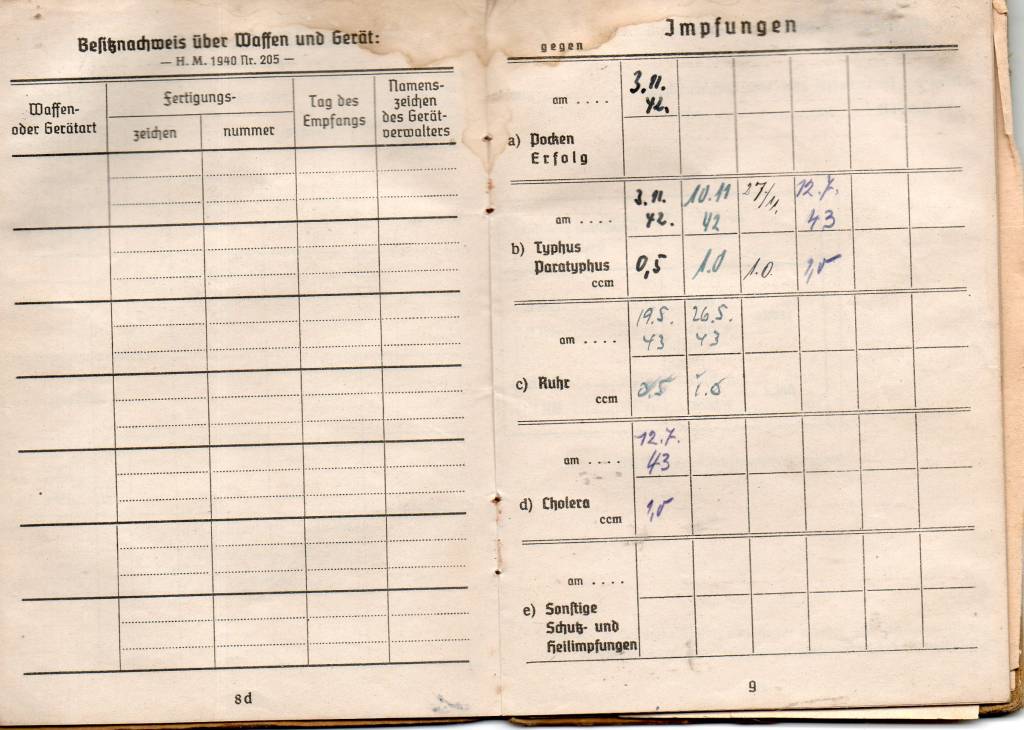 Besitznachweis über Waffen und Gerät:
— H. M. 1940 Nr. 205 —
Waffen-
oder Gerätart
Fertigungs-
zeichen
nummer
Tag des
Empfangs
Namens-
zeichen
des Gerät-
verwalters
8d
Impfungen
gegen
am ....
3.11.
42.
a) Pocken
Erfolg
am ....
3.11. 10.11 27/11. 12.7.
42. 42 43
b) Typhus
Paratyphus
ccm
0,5 1.0 1.0. 1,0
am ....
19.5. 26.5.
43 43
c) Ruhr
ccm
0.5 1.0
am ....
12.7.
43
d) Cholera
ccm
1,0
am ....
e) Sonstige
Schutz- und
Heilimpfungen
9